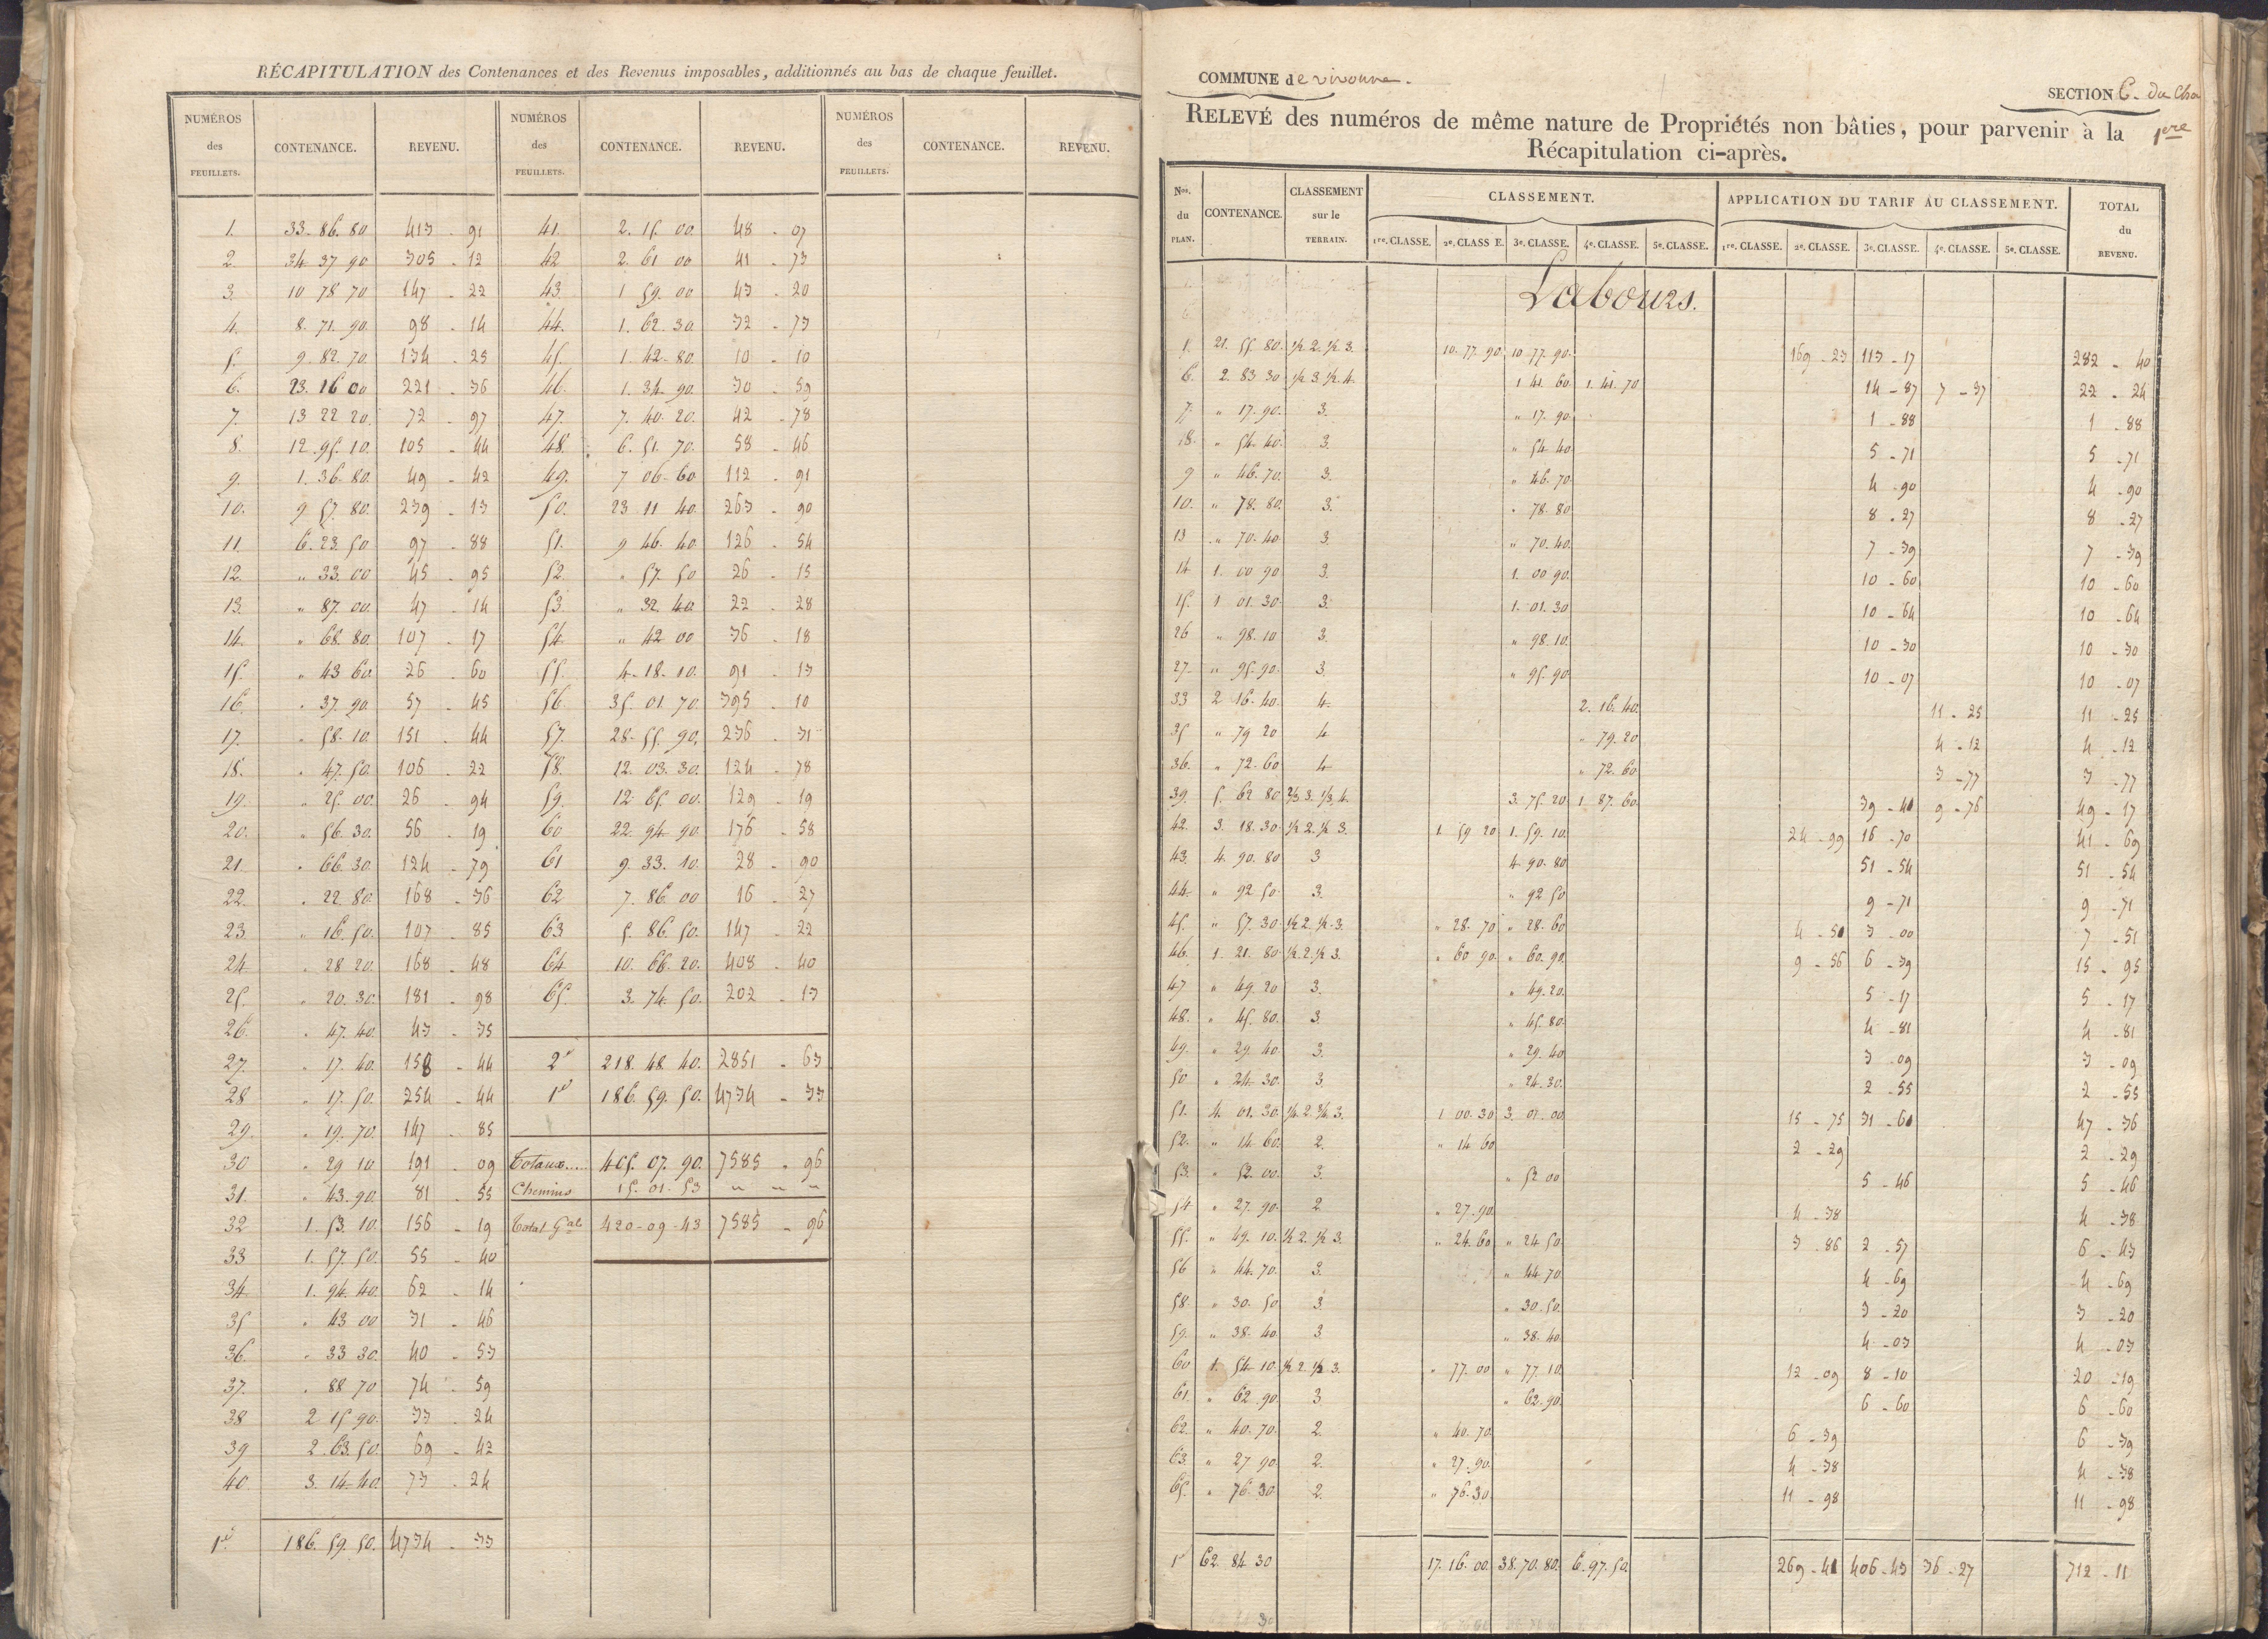 RÉCAPITULATION des Contenances et des Revenus imposables, additionnés au bas de chaque feuillet.
NUMÉROS des FEUILLETS. CONTENANCE. REVENU. NUMÉROS des FEUILLETS. CONTENANCE. REVENU. NUMÉROS des FEUILLETS. CONTENANCE. REVENU.
1. 33. 86. 80 413 - 91 41. 2. 15. 00 48 - 07
2. 34 37 90 305 - 12 42 2. 61 00 41 - 73
3. 10 78 70 147 - 22 43. 1 59. 00 43 - 20
4. 8. 71. 90 98 - 14 44. 1. 62. 30 32 - 73
5. 9. 82. 70 134 - 25 45. 1. 42. 80. 10 - 10
6. 23. 16 00 221 - 36 46. 1. 34. 90. 30 - 59
7. 13 22 20. 72 - 97 47. 7. 40. 20. 42 - 78
8. 12. 95. 10. 105 - 44 48. 6. 51. 70. 58 - 46
9. 1. 36. 80. 49 - 42 49. 7 06. 60 112 - 91
10. 9 57. 80. 239 - 13 50. 23 11 40. 263 - 90
11. 6. 23. 50 97 - 88 51. 9 46. 40. 126 - 54
12. " 33. 00 45 - 95 52. " 57. 50 26 - 15
13. " 87. 00. 47 - 14 53. " 32. 40. 22 - 28
14. " 68. 80. 107 - 17 54. " 42 00 36 - 18
15. " 43 60 26 - 60 55. 4. 18. 10. 91 - 13
16. " 37. 90. 57 - 45 56. 35. 01. 70. 395 - 10
17. " 58. 10. 151 - 44 57. 28. 55. 90. 236 - 31
18. " 47. 50. 106 - 22 58. 12. 03. 30. 124 - 78
19. " 25. 00. 26 - 94 59. 12. 65. 00. 129 - 19
20. " 56. 30. 56 - 19 60 22. 94. 90. 176 - 58
21. " 66. 30. 124 - 79 61 9. 33. 10. 28 - 90
22. " 22. 80. 168 - 36 62 7. 86. 00 16 - 27
23. " 16. 50. 107 - 85 63 5. 86. 50. 147 - 22
24 " 28 20. 168 - 48 64 10. 66. 20. 408 - 40
25. " 20. 30. 181 - 98 65. 3. 74. 50. 202 - 13
26. " 47. 40. 43 - 35
27. " 17. 40. 158 - 44 2e 218. 48. 40. 2851 - 63
28 " 17. 50. 254 - 44 1e 186. 59. 50. 4734 - 33
29. " 19. 70. 147 - 85
30 " 29 10. 191 - 09 Totaux..... 405. 07. 90. 7585 - 96
31. " 43. 90. 81 - 55 Chemins 15. 01. 53 " " "
32 1. 53. 10. 156 - 19 Total Gal 420-09-43 7585 - 96
33 1. 57. 50. 55 - 40
34. 1. 94. 40. 62 - 14
35 " 43 00 31 - 46
36. " 33 30. 40 - 53
37. " 88 70 74 - 59
38 2 15 90. 33 - 24
39 2. 63. 50. 69 - 42
40. 3. 14. 40. 73 - 24
1e 186. 59. 50. 4734 - 33
COMMUNE de vivonne.
SECTION C. du Cha
RELEVÉ des numéros de même nature de Propriétés non bâties, pour parvenir à la 1ere
Récapitulation ci-après.
Nos. du PLAN. CONTENANCE. CLASSEMENT sur le TERRAIN. CLASSEMENT. APPLICATION DU TARIF AU CLASSEMENT. TOTAL du REVENU.
1re. CLASSE. 2e. CLASSE. 3e. CLASSE. 4e. CLASSE. 5e. CLASSE. 1re. CLASSE. 2e. CLASSE. 3e. CLASSE. 4e. CLASSE. 5e. CLASSE.
Labours.
1. 21. 55. 80. 1/2 2. 1/2 3. 10. 77. 90. 10. 77. 90. 169 - 23 113 - 17 282 - 40
6. 2. 83 30 1/2 3 1/2 4. 1 41. 60. 1. 41. 70 14 - 87 7 - 37 22 - 24
7. " 17. 90. 3. " 17. 90. 1 - 88 1 - 88
18. " 54. 40. 3. " 54 40 5 - 71 5 - 71
9 " 46. 70. 3. " 46. 70. 4 - 90 4 - 90
10. " 78. 80. 3. " 78. 80 8 - 27 8 - 27
13 " 70. 40. 3. " 70. 40. 7 - 39 7 - 39
14 1. 00 90 3. 1. 00 90. 10 - 60 10 - 60
15. 1 01. 30. 3. 1. 01. 30 10 - 64 10 - 64
26 " 98. 10 3. " 98. 10. 10 - 30 10 - 30
27. " 95. 90. 3. " 95. 90 10 - 07 10 - 07
33 2 16. 40. 4. 2. 16. 40. 11 - 25 11 - 25
35 " 79 20 4 " 79. 20 4 - 12 4 - 12
36. " 72. 60 4 " 72. 60 3 - 77 3 - 77
39. 5. 62 80 2/3 3. 1/3 4. 3. 75. 20. 1 87. 60. 39 - 41 9 - 76 49 - 17
42. 3. 18. 30. 1/2 2. 1/2 3. 1. 59 20 1. 59. 10. 24 - 99 16 - 70 41 - 69
43. 4. 90. 80 3 4. 90. 80 51 - 54 51 - 54
44. " 92 50. 3. " 92 50 9 - 71 9 - 71
45. " 57. 30. 1/2 2. 1/2. 3. " 28. 70 " 28. 60 4 - 51 3 - 00 7 - 51
46. 1. 21. 80. 1/2. 2. 1/2 3. " 60 90. " 60. 90. 9 - 56 6 - 39 15 - 95
47 " 49. 20 3. " 49. 20. 5 - 17 5 - 17
48. " 45. 80. 3. " 45. 80. 4 - 81 4 - 81
49. " 29. 40. 3. " 29. 40 3 - 09 3 - 09
50 " 24. 30. 3. " 24. 30. 2 - 55 2 - 55
51. 4. 01. 30. 1/4. 2. 3/4. 3. 1 00. 30 3. 01. 00. 15 - 75 31 - 61 47 - 36
52. " 14 60. 2. " 14 60 2 - 29 2 - 29
53. " 52. 00. 3. " 52 00 5 - 46 5 - 46
54 " 27. 90. 2 " 27. 90. 4 - 38 4 - 38
55. " 49. 10. 1/2 2. 1/2 3. " 24. 60. " 24 50. 3 - 86 2 - 57 6 - 43
56 " 44. 70. 3. " 44. 70. 4 - 69 4 - 69
58. " 30. 50 3. " 30. 50. 3 - 20 3 - 20
59. " 38. 40. 3 " 38. 40. 4 - 03 4 - 03
60 1. 54. 10. 1/2 2. 1/2 3. " 77. 00 " 77. 10. 12 - 09 8 - 10 20 - 19
61. " 62. 90. 3 " 62. 90. 6 - 60 6 - 60
62. " 40. 70. 2. " 40. 70. 6 - 39 6 - 39
63. " 27 90. 2. " 27. 90. 4 - 38 4 - 38
65. " 76. 30 2. " 76. 30. 11 - 98 11 - 98
1e 62. 84 30 17. 16. 00. 38. 70. 80. 6. 97. 50. 269 - 41 406 - 43 36 - 27 712 - 11